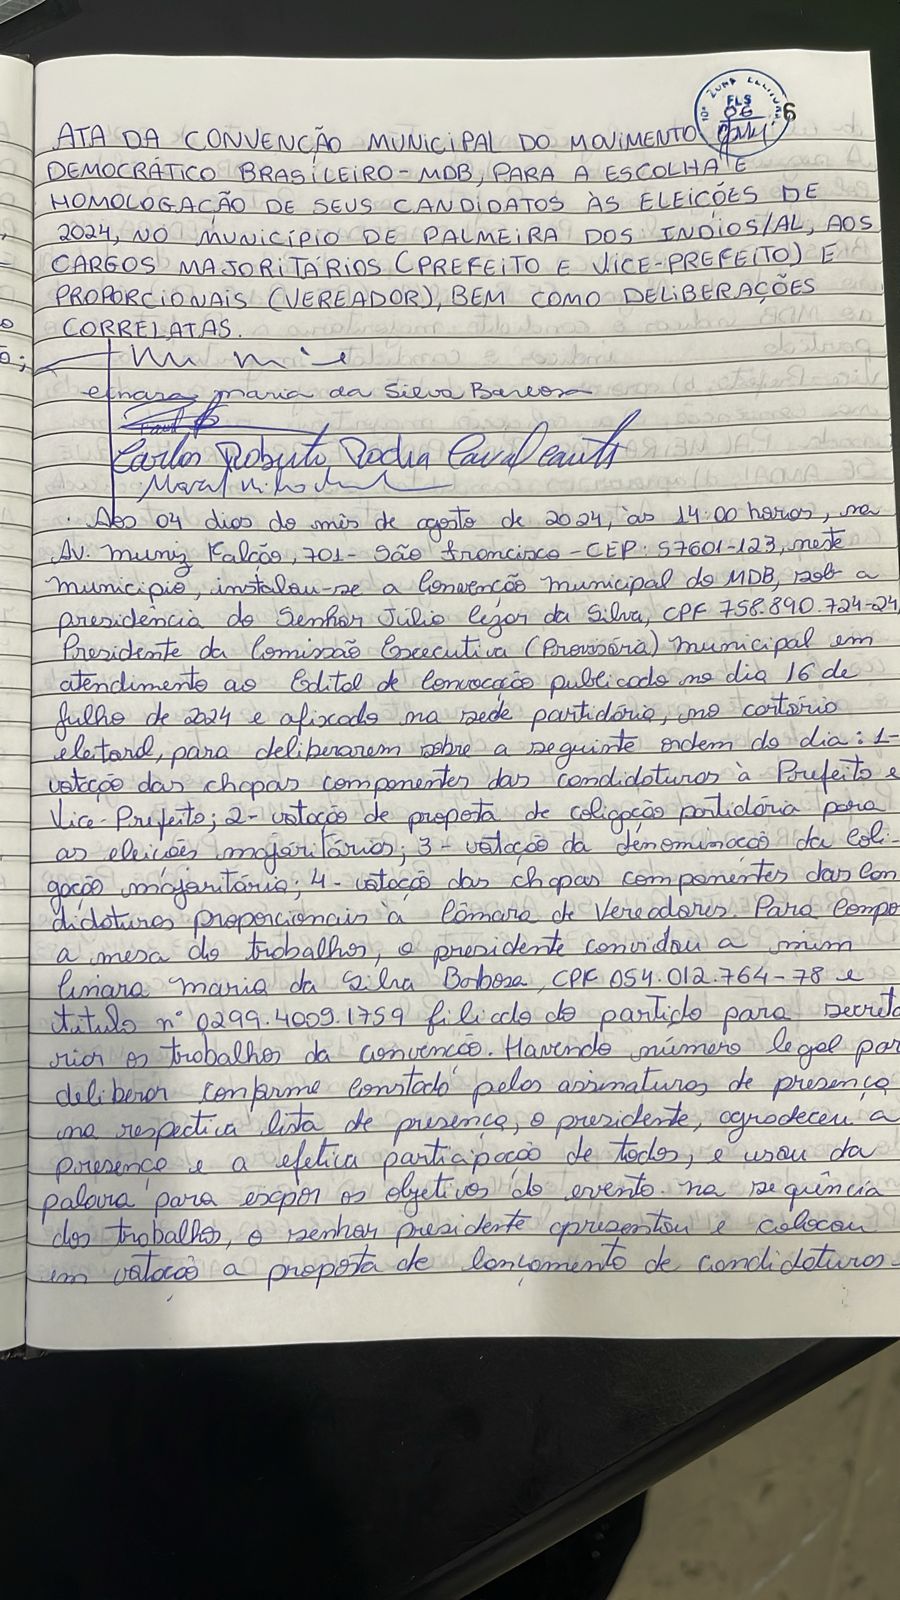 10ª ZONA ELEITORAL
FLS
06
6
ATA DA CONVENÇÃO MUNICIPAL DO MOVIMENTO
DEMOCRÁTICO BRASILEIRO-MDB, PARA A ESCOLHA E
HOMOLOGAÇÃO DE SEUS CANDIDATOS ÀS ELEIÇÕES DE
2024, NO MUNICÍPIO DE PALMEIRA DOS INDIOS/AL, AOS
CARGOS MAJORITÁRIOS (PREFEITO E VICE-PREFEITO) E
PROPORCIONAIS (VEREADOR), BEM COMO DELIBERAÇÕES
CORRELATAS.
maria da Silva Barbosa
Carlos Roberto Rocha Cavalcanti
Aos 04 dias do mês de agosto de 2024, às 14:00 horas, na
Av. Muniz Falcão, 701 - São Francisco - CEP: 57601-123, neste
município, instalou-se a Convenção Municipal do MDB, sob a
presidência do Senhor Júlio Cezar da Silva, CPF 758.890.724-24,
Presidente da Comissão Executiva (Provisória) municipal em
atendimento ao Edital de Convocação publicado no dia 16 de
Julho de 2024 e afixado na sede partidária, no cartório
eleitoral, para deliberarem sobre a seguinte ordem do dia: 1-
votação das chapas componentes das candidaturas à Prefeito e
Vice-Prefeito; 2- votação de proposta de coligação partidária para
as eleições majoritárias; 3- votação da denominação da Coli-
gação majoritária; 4- votação das chapas componentes das Can
didaturas proporcionais à Câmara de Vereadores. Para compo
a mesa do trabalhos, o presidente convidou a mim
Cinara Maria da Silva Barbosa, CPF 054.012.764-78 e
título nº 0299.4009.1759 filiado do partido para secreta
riar os trabalhos da convenção. Havendo número legal par
deliberar conforme constado pelas assinaturas de presença
na respectiva lista de presença, o presidente, agradeceu a
presença e a efetica participação de todos, e usou da
palavra para expor os objetivos do evento. na sequência
dos trabalhos, o senhor presidente apresentou e colocou
em votação a proposta de lançamento de candidaturas